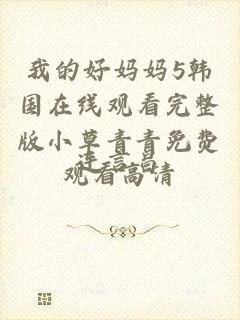 我的好妈妈5韩
国在线观看完整
版小草青青免费
观看高清